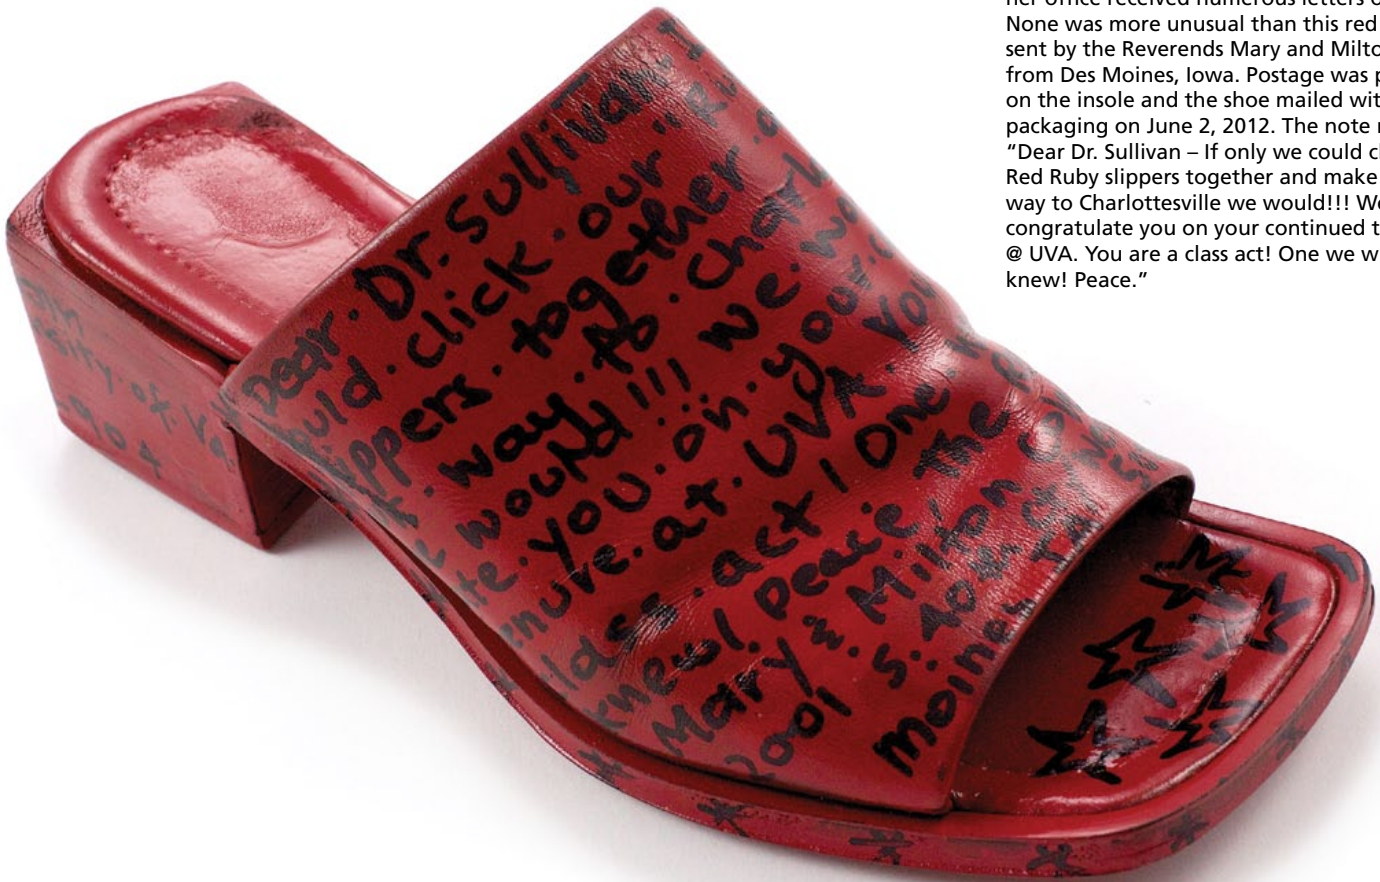 her office received numerous letters
None was more unusual than this red
sent by the Reverends Mary and Milto
from Des Moines, Iowa. Postage was p
on the insole and the shoe mailed wit
packaging on June 2, 2012. The note
“Dear Dr. Sullivan – If only we could c
Red Ruby slippers together and make
way to Charlottesville we would!!! We
congratulate you on your continued t
@ UVA. You are a class act! One we w
knew! Peace.”
Dear · Dr. Sullivan. I
ould · click · our · "Ru
ippers · together ·
way · to · Charl
we would!!! we · wa
te · you · on · your · c
enure · at · UVA · You
class · act! One
knew! Peace, The
Mary " n " Milton
2001 S.
moine
sity of Va
904